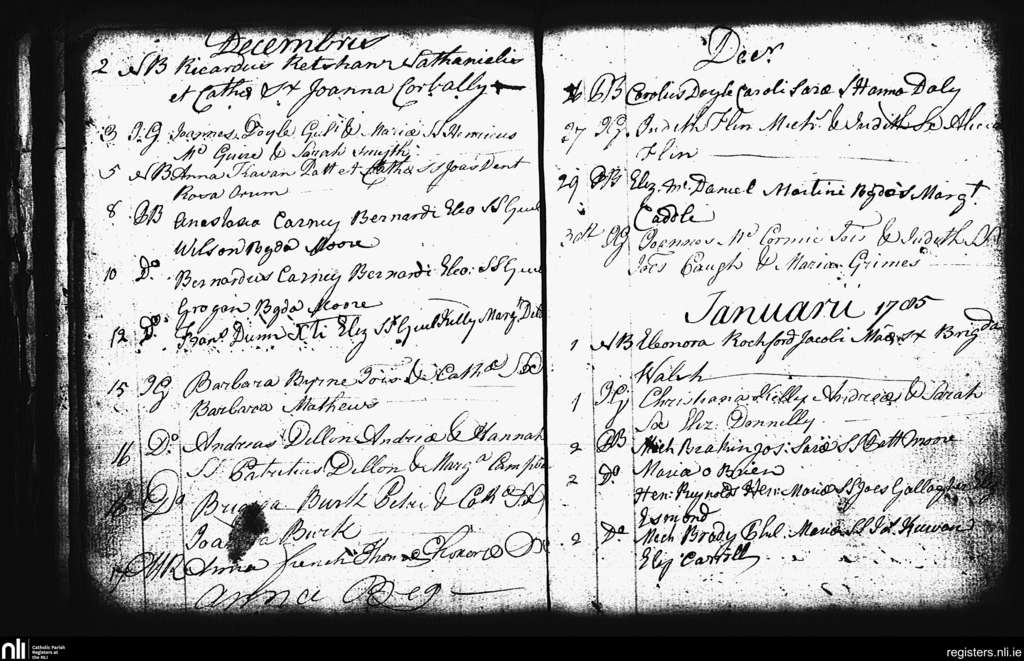 Decembris
2 NB Ricardus Ketshanr Nathanielis
et Cathæ Sx Joanna Corbally
3 JG Joannes Doyle Gul: & Mariæ Ss Henricus
Mc Guire & Sarah Smyth
5 NB Anna Travan Patt et Cathæ Ss Joas Dent
Rosa Orum
8 BB Anastasia Carney Bernardi Eleo SS Guil
Wilson Bgda Moore
10 Do. Bernardus Carney Bernardi Eleo: SS Guil
Grogan Bgda Moore
12 Do. Dunn Xti Eliz Ss Guil Kelly Margt
15 JG Barbara Byrne Jois & Cathæ Sx
Barbara Mathews
16 Do. Andreas Dillon Andriæ & Hannah
Ss Patritius Dillon & Margta
Do Burk Petri & Cath Sx
Burk
Anna French Thom &
Anna Beg
Decr.
26 BB Carolus Doyle Caroli Saræ S Hanna Daly
27 JG Judith Flin Michl. & Judith Sx Alicia
Flin
29 BB Eliz. Mc Daniel Martini Bgdæ Ss Margt
Caddle
30th JG Joannes Mc Cormic Jois & Judith
Joes Caugh & Maria Grimes
Januarii 1785
1 NB Eleonora Rochford Jacobi Mariæ Sx Brigda
Walsh
1 JG Christiana Kelly Andreæ & Sarah
Sx Eliz. Donnelly
2 BB Mich Brakin Jos: Saræ SS Patt Moore
Maria O Brien
2 Do. Hen: Reynolds Hen: Mariæ SS Joes Gallagher Eliz
Esmond
2 Do Mich Brady Phil. Mariæ SS Jos. Kerwan
Eliz Carroll
nli
Catholic Parish
Registers at
the NLI
registers.nli.ie